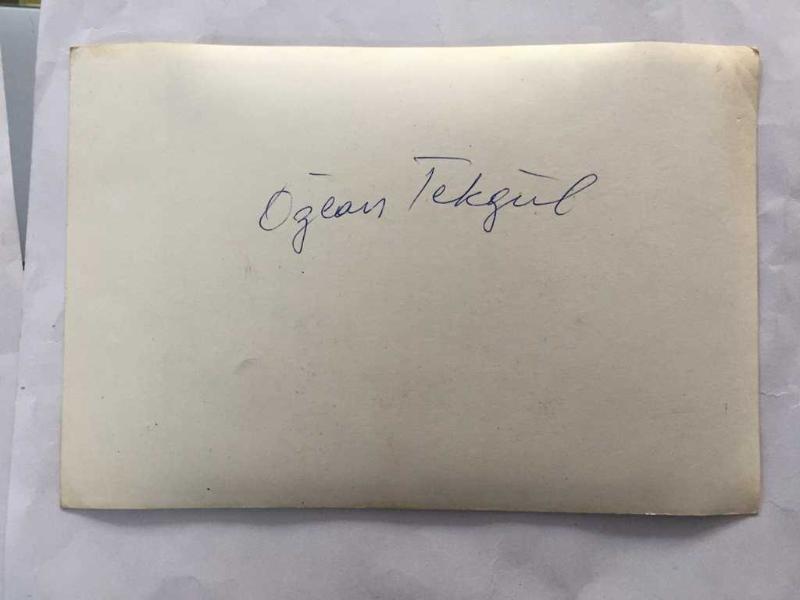 Özcan Tekgül